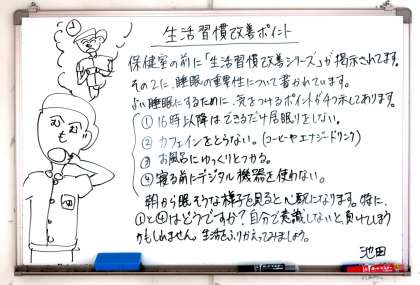 生活習慣改善ポイント
保健室の前に「生活習慣改善シリーズ」が掲示されてます。
その2に、睡眠の重要性について書かれています。
よい睡眠にするために、気をつけるポイントが4つ示してあります。
① 16時以降はできるだけ居眠りをしない。
② カフェインをとらない。(コーヒーやエナジードリンク)
③ お風呂にゆっくりとつかる。
④ 寝る前にデジタル機器を使わない。
朝から眠そうな様子を見ると心配になります。特に、
①と④はどうですか?自分で意識しないと、負けてしまう
かもしれません。生活をふりかえってみましょう。
池田